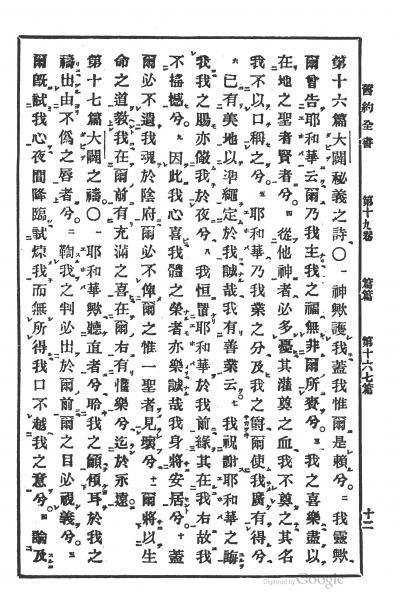 舊約全書　第十九卷　篇篇　第十六七篇　十二
第十六篇大闢秘義之詩〇一神歟護我蓋我惟爾是賴兮二我靈歟
爾曾告耶和華云爾乃我主我之福無非爾所賚兮三我之喜樂盡以
在地之聖者賢者兮四從他神者必多憂其灌奠之血我不奠之其名
我不以口稱之兮五耶和華乃我業之分及我之爵爾使我廣有得兮
六已有美地以準繩定於我誠哉我有善業云七我祝謝耶和華之誨
我我之腸亦儆我於夜兮八我恒置耶和華於我前緣其在我右故我
不搖撼兮九因此我心喜我體之榮者亦樂誠哉我身將安居兮十蓋
爾必不遺我魂於陰府爾必不俾爾之惟一聖者見壞兮十一爾將以生
命之道教我在爾前有充滿之喜在爾右有懽樂兮迄於永遠
第十七篇大闢之禱〇一耶和華歟聽直者兮聆我之籲傾耳於我之
禱出由不僞之唇者兮二鞫我之判必出於爾前爾之目必視義兮三
爾既試我心夜間降臨試煉我而無所得我口不越我之意兮四論及
Digitized by Google